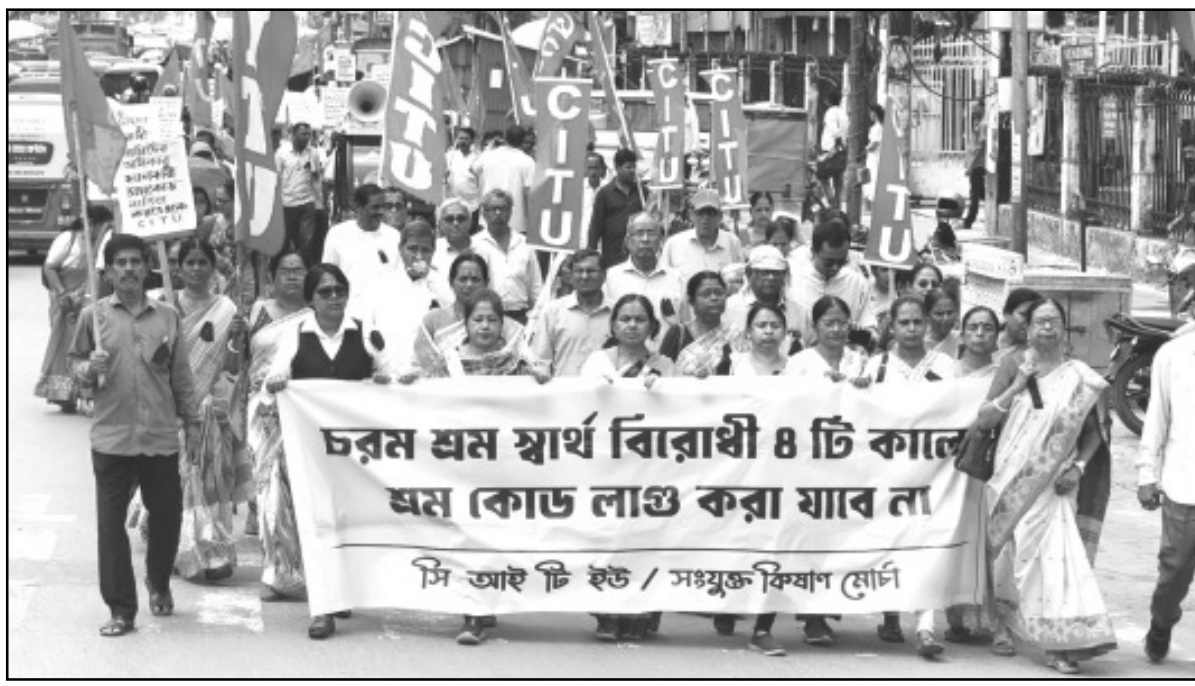 CITU
CITU
CITU
CITU
CITU
CITU
চরম শ্রম স্বার্থ বিরোধী ৪ টি কালো
শ্রম কোড লাগু করা যাবে না
সি আই টি ইউ / সংযুক্ত কিষাণ মোর্চা